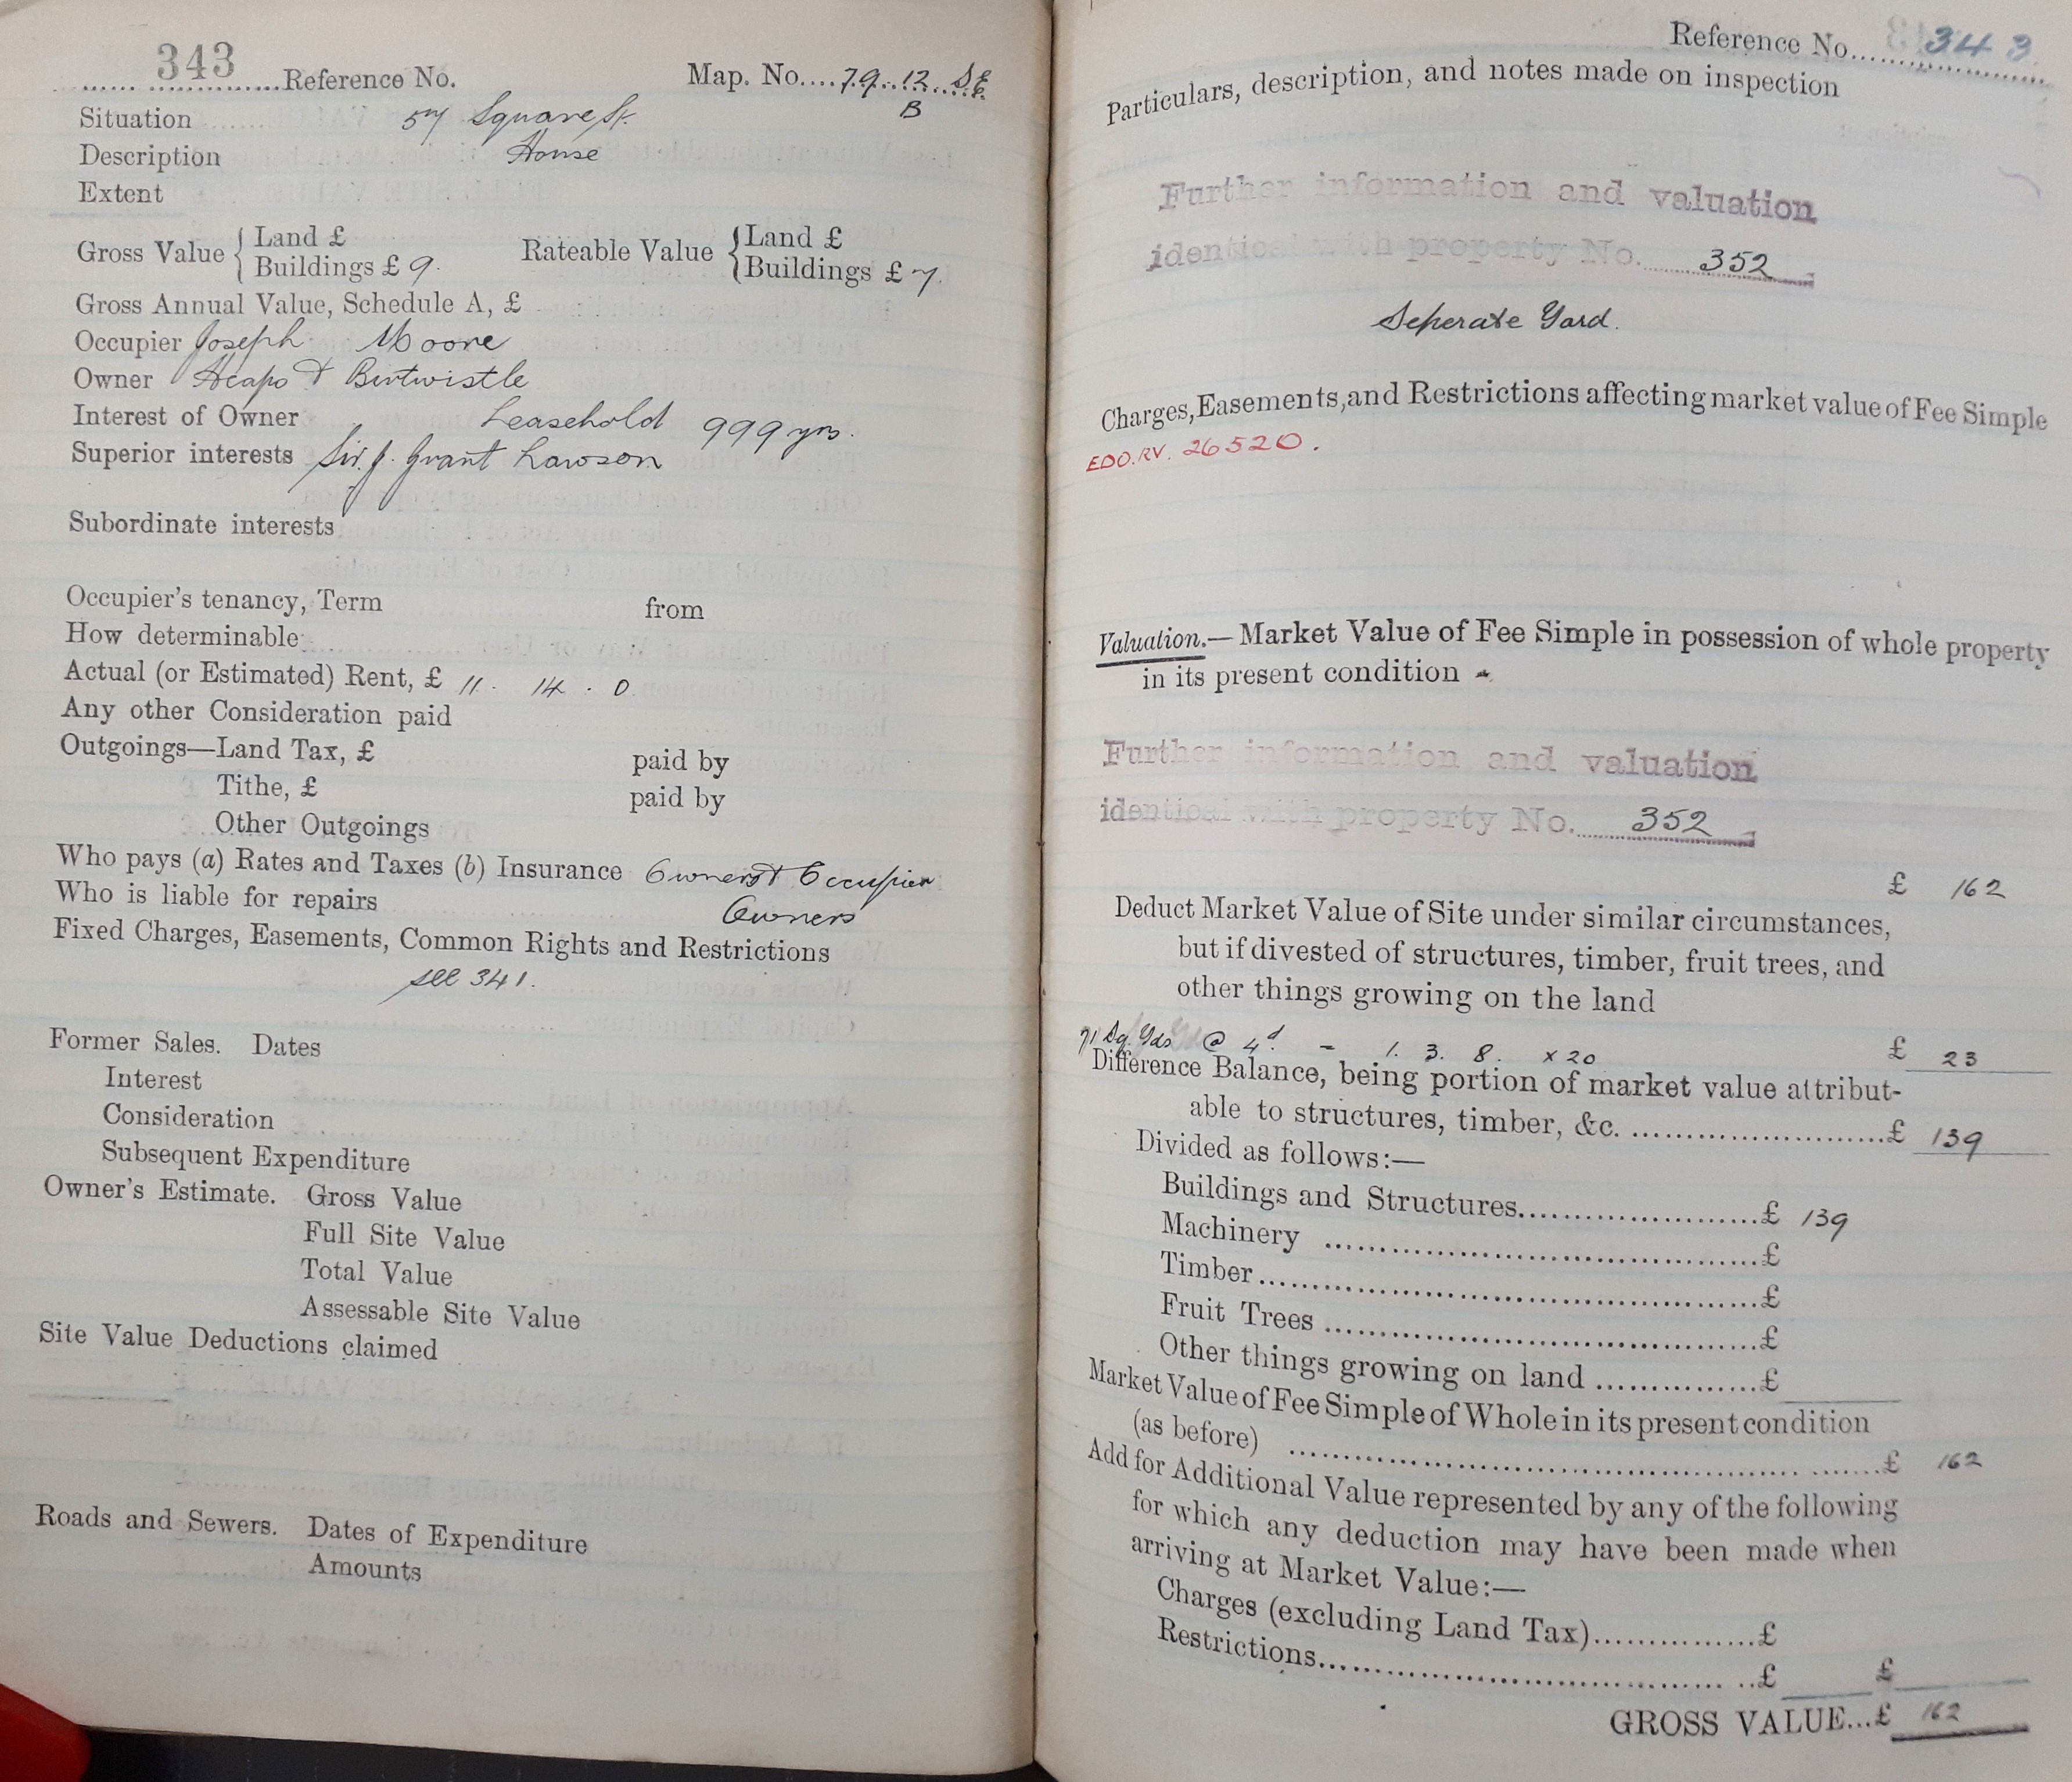 343 Reference No. Map. No. 79. 12 S.E.
B
Situation 57 Square St.
Description House
Extent
Gross Value { Land £
Buildings £ 9.
Rateable Value { Land £
Buildings £ 7.
Gross Annual Value, Schedule A, £
Occupier Joseph Moore
Owner & Birtwistle
Interest of Owner Leasehold 999 yrs.
Superior interests Sir. J. Grant Lawson
Subordinate interests
Occupier's tenancy, Term from
How determinable
Actual (or Estimated) Rent, £ 11 . 14 . 0
Any other Consideration paid
Outgoings—Land Tax, £ paid by
Tithe, £ paid by
Other Outgoings
Who pays (a) Rates and Taxes (b) Insurance Owners & Occupier
Who is liable for repairs Owners
Fixed Charges, Easements, Common Rights and Restrictions
see 341.
Former Sales. Dates
Interest
Consideration
Subsequent Expenditure
Owner's Estimate. Gross Value
Full Site Value
Total Value
Assessable Site Value
Site Value Deductions claimed
Roads and Sewers. Dates of Expenditure
Amounts
Reference No. 343
Particulars, description, and notes made on inspection
Further information and valuation
identical with property No. 352
Seperate Yard.
Charges, Easements, and Restrictions affecting market value of Fee Simple
EDO. RV. 26520.
Valuation.—Market Value of Fee Simple in possession of whole property
in its present condition
Further information and valuation
identical with property No. 352
£ 162
Deduct Market Value of Site under similar circumstances,
but if divested of structures, timber, fruit trees, and
other things growing on the land
71 Sq. Yds @ 4d - 1. 3. 8. x 20 £ 23
Difference Balance, being portion of market value attribut-
able to structures, timber, &c. £ 139
Divided as follows:—
Buildings and Structures £ 139
Machinery £
Timber £
Fruit Trees £
Other things growing on land £
Market Value of Fee Simple of Whole in its present condition
(as before) £ 162
Add for Additional Value represented by any of the following
for which any deduction may have been made when
arriving at Market Value:—
Charges (excluding Land Tax) £
Restrictions £ £
GROSS VALUE...£ 162